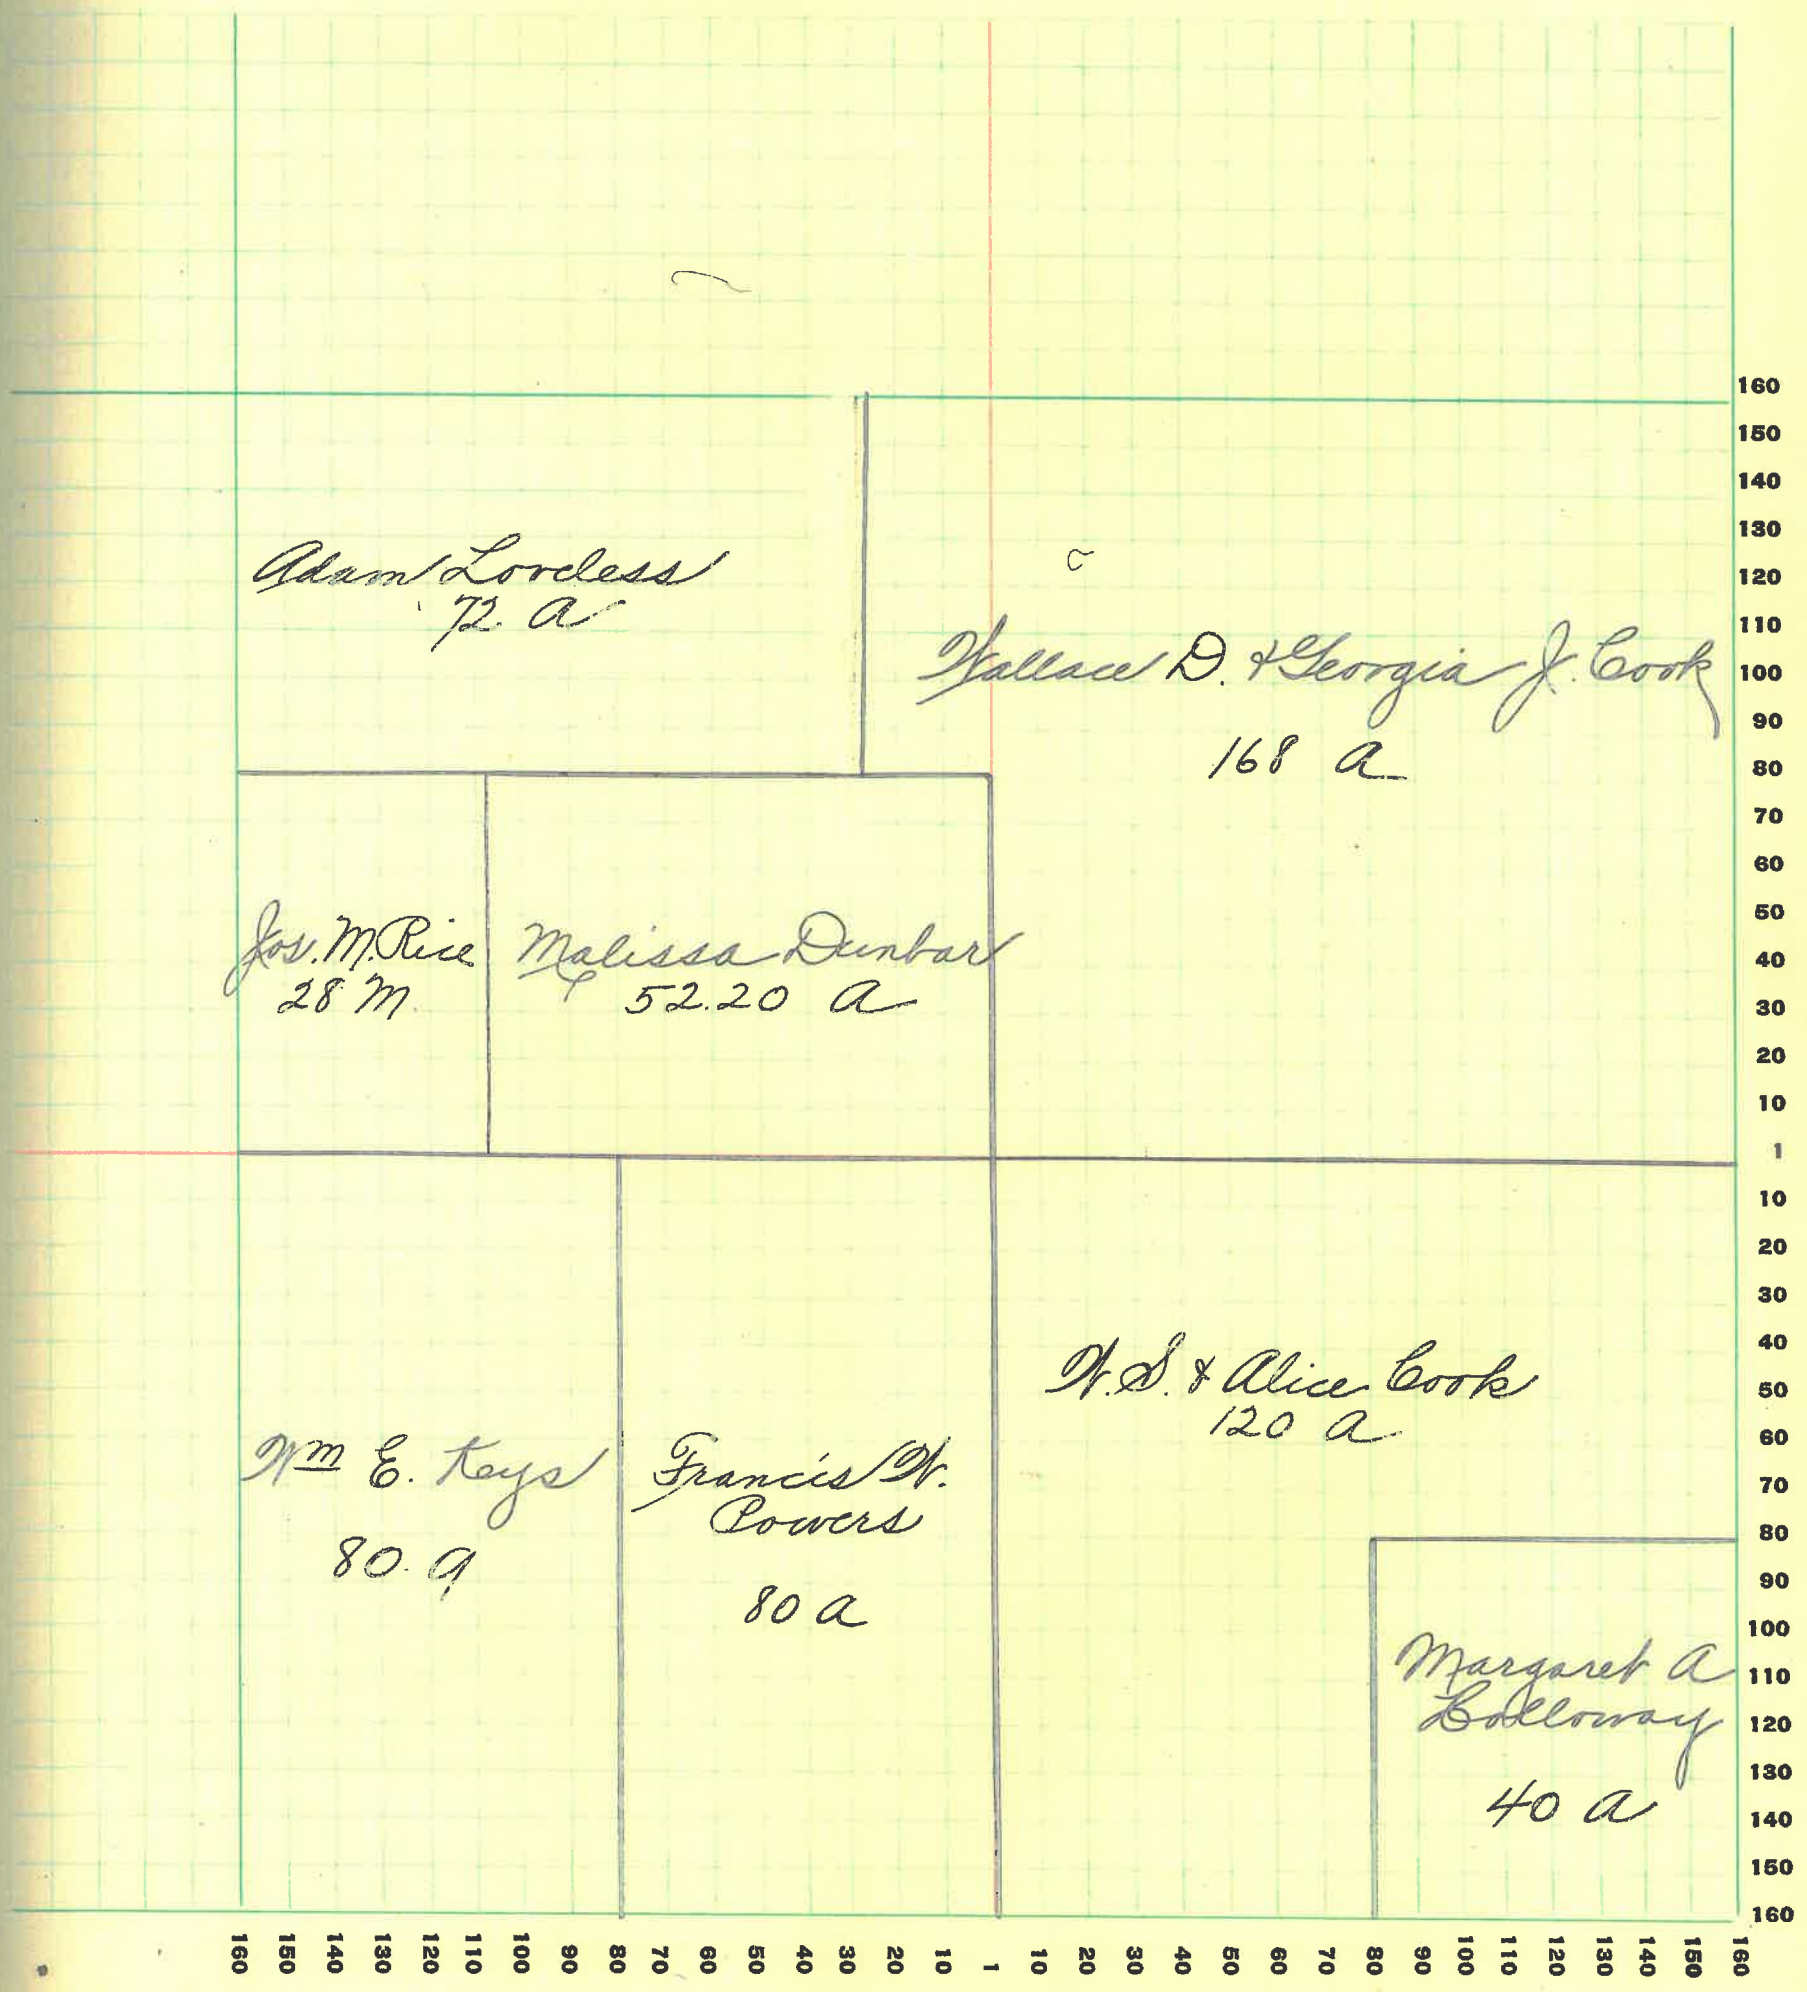 Adam Loveless
72 A
Wallace D. & Georgia J. Cook
168 A
Jos. M. Rice
28 M.
Malissa Dunbar
52.20 A
W. S. & Alice Cook
120 A
Wm E. Keys
80. A
Francis W.
Powers
80 A
Margaret A
Holloway
40 A
160
150
140
130
120
110
100
90
80
70
60
50
40
30
20
10
1
10
20
30
40
50
60
70
80
90
100
110
120
130
140
150
160
160 150 140 130 120 110 100 90 80 70 60 50 40 30 20 10 1 10 20 30 40 50 60 70 80 90 100 110 120 130 140 150 160